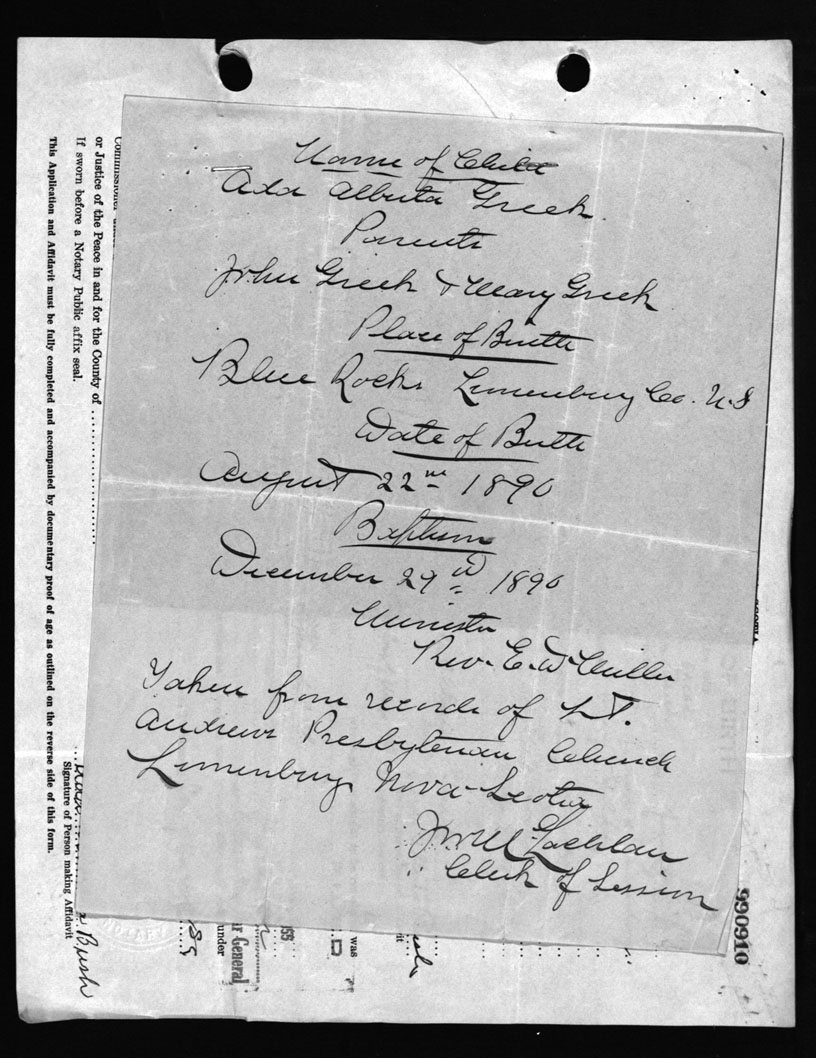 Name of Child
Ada Alberta Greek
Parents
John Greek & Mary Greek
Place of Birth
Blue Rocks Lunenburg Co. N.S
Date of Birth
August 22nd 1890
Baptism
December 29th 1890
Minister
Rev. E. W. Miller
Taken from records of St.
Andrews Presbyterian Church
Lunenburg Nova Scotia
Lachlan
Clerk of Session
or Justice of the Peace in and for the County of
If sworn before a Notary Public affix seal.
This Application and Affidavit must be fully completed and accompanied by documentary proof of age as outlined on the reverse side of this form.
Signature of Person making Affidavit
Bush
General
under
was
990910